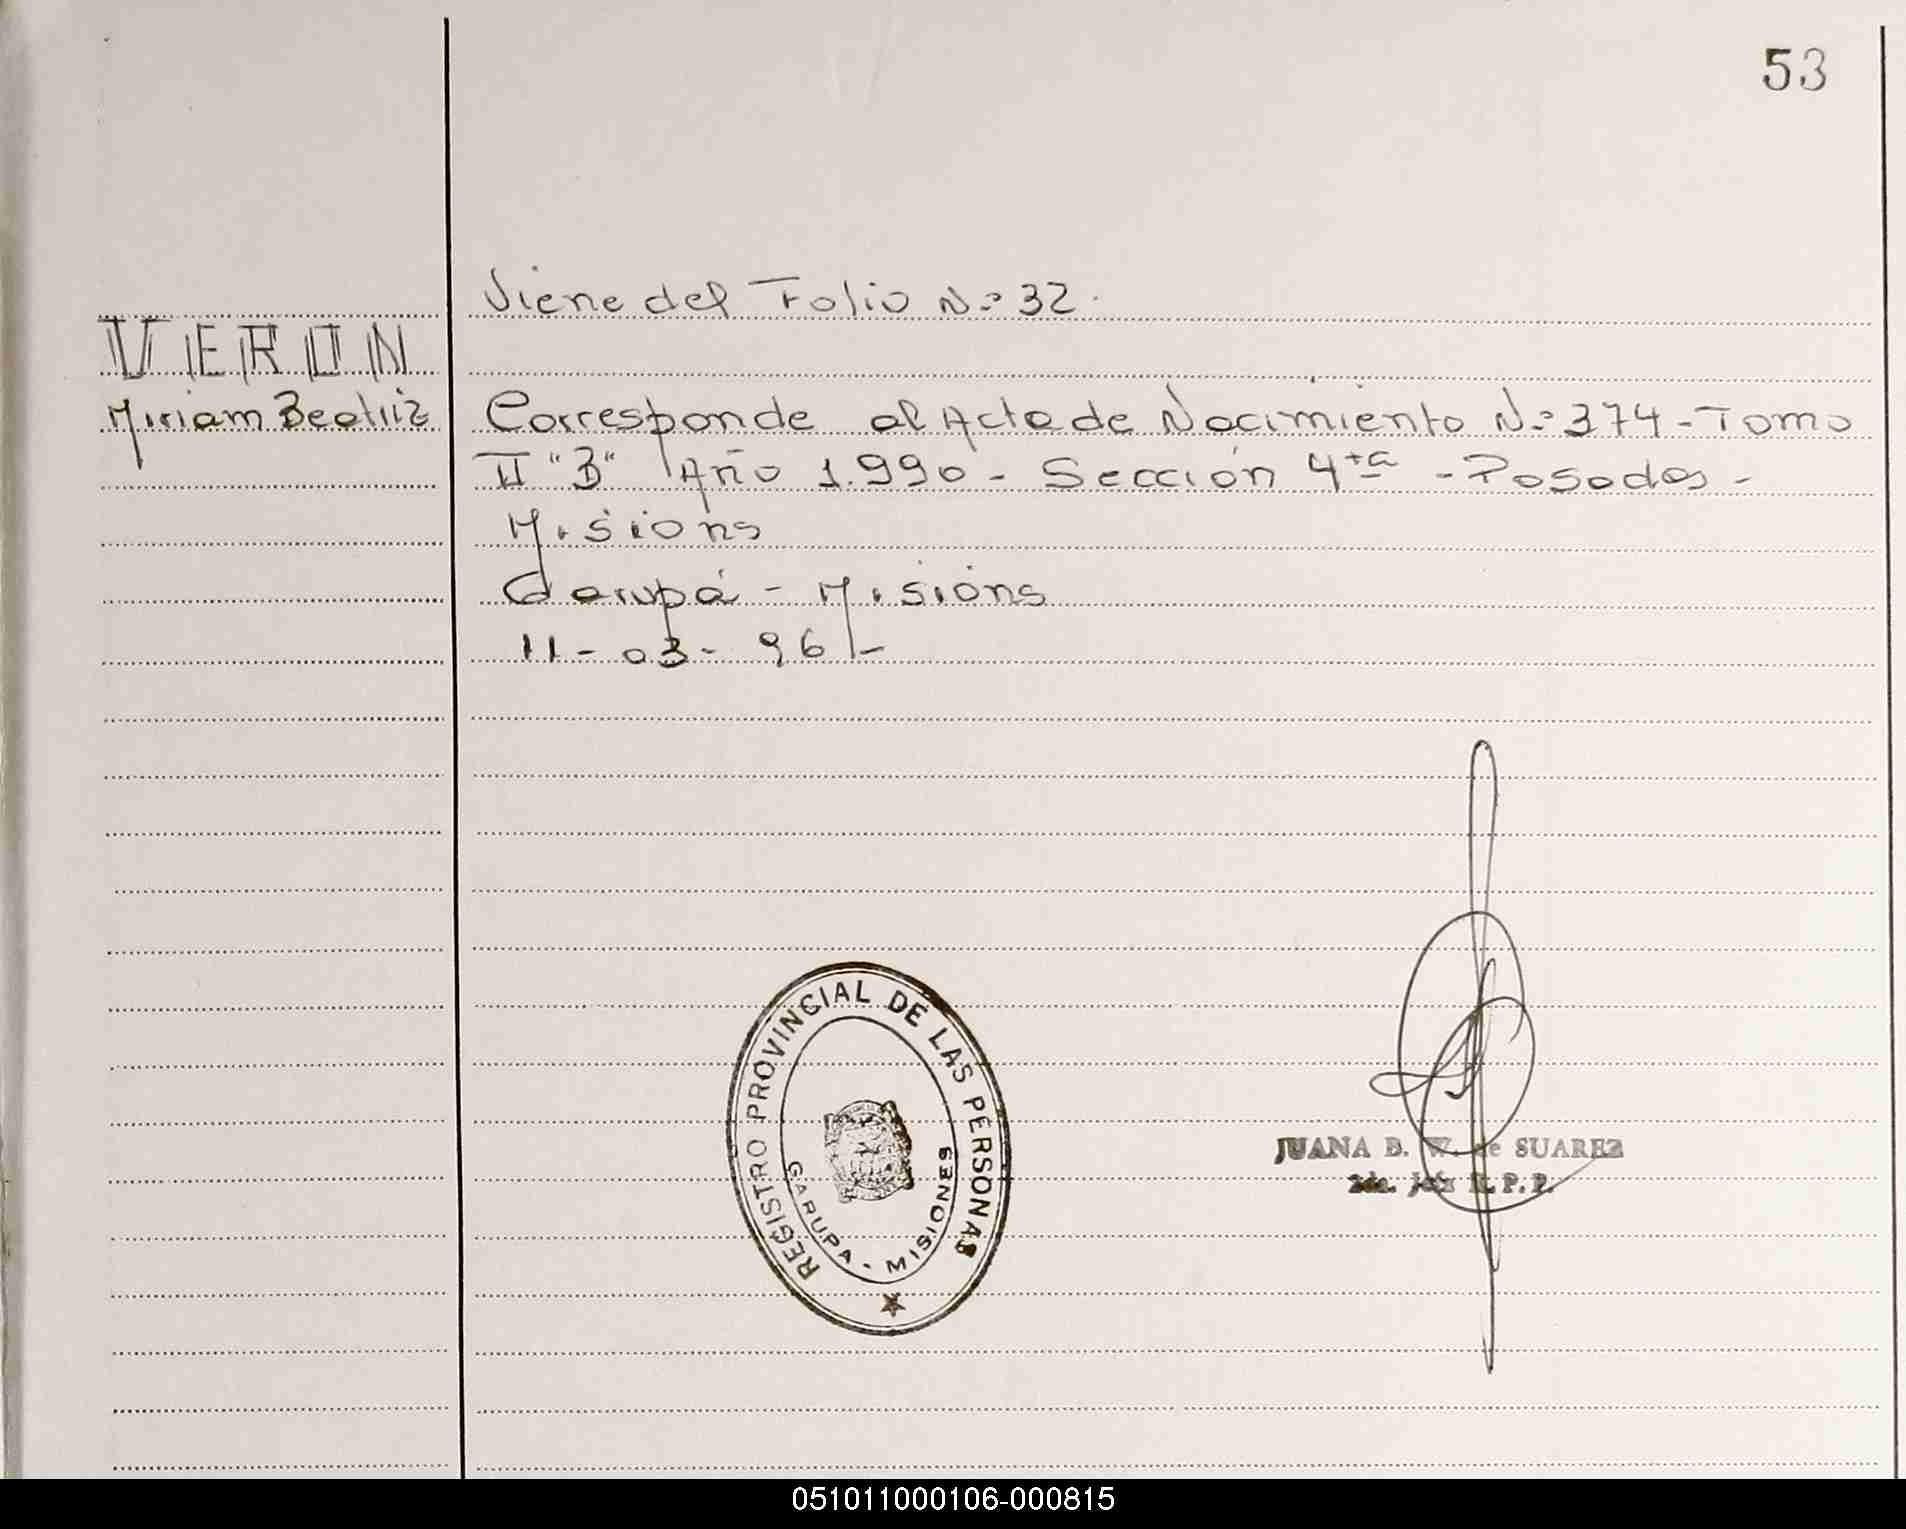 53
Viene del Folio N.º 32.
VERON
Miriam Beatriz
Corresponde al Acta de Nacimiento N.º 374 - Tomo
II "B" Año 1.990 - Sección 4ta - Posadas -
Misions
Garupá - Misións
11 - 03 - 96 -
REGISTRO PROVINCIAL DE LAS PERSONAS
GARUPA - MISIONES
JUANA B. W. de SUAREZ
2da. Jefe R. P. P.
051011000106-000815